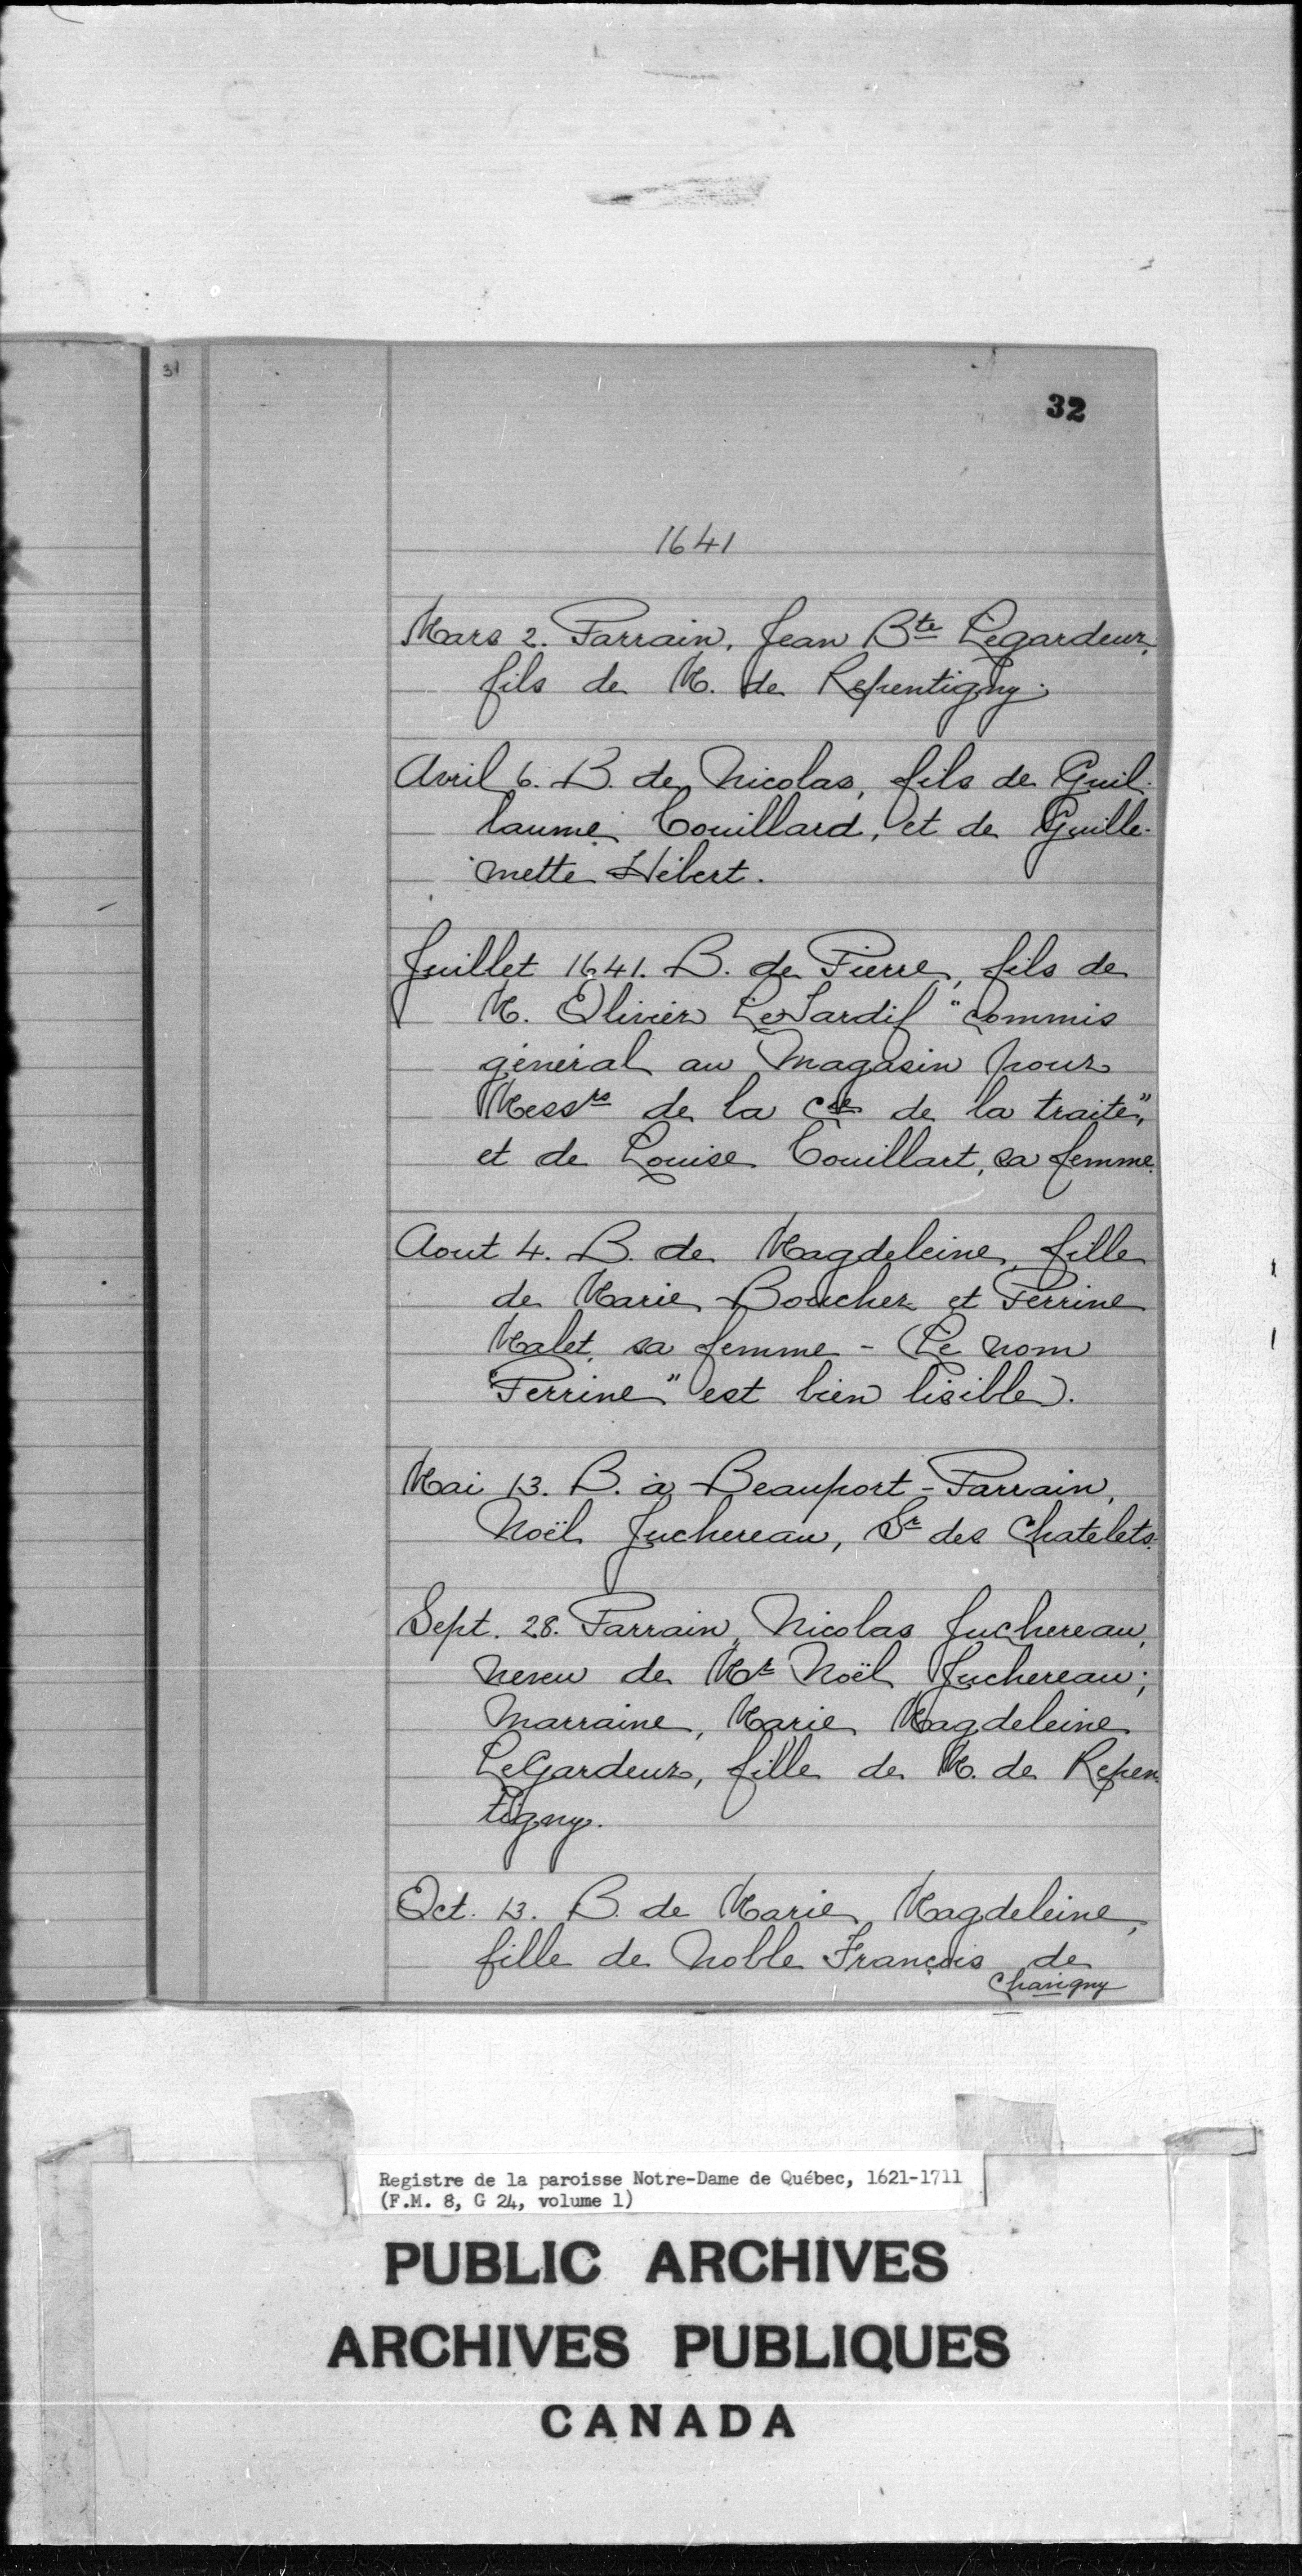 31
32
1641
Mars 2. Parrain, Jean Bte Legardeur,
fils de M. de Repentigny.
Avril 6. B. de Nicolas, fils de Guil-
laume Couillard, et de Guille-
mette Hébert.
Juillet 1641. B. de Pierre, fils de
M. Olivier LeTardif "commis
général au Magasin pour
Messrs de la Cie de la traite",
et de Louise Couillart, sa femme.
Aout 4. B. de Magdeleine, fille
de Marie Boucher et Perrine
Malet, sa femme - (Le nom
"Perrine" est bien lisible).
Mai 13. B. à Beauport - Parrain,
Noël Juchereau, Sr des Chatelets.
Sept. 28. Parrain, Nicolas Juchereau,
neveu de Mr Noël Juchereau;
Marraine, Marie Magdeleine
LeGardeur, fille de M. de Repen-
tigny.
Oct. 13. B. de Marie Magdeleine,
fille de Noble François de
Chavigny
Registre de la paroisse Notre-Dame de Québec, 1621-1711
(F.M. 8, G 24, volume 1)
PUBLIC ARCHIVES
ARCHIVES PUBLIQUES
CANADA